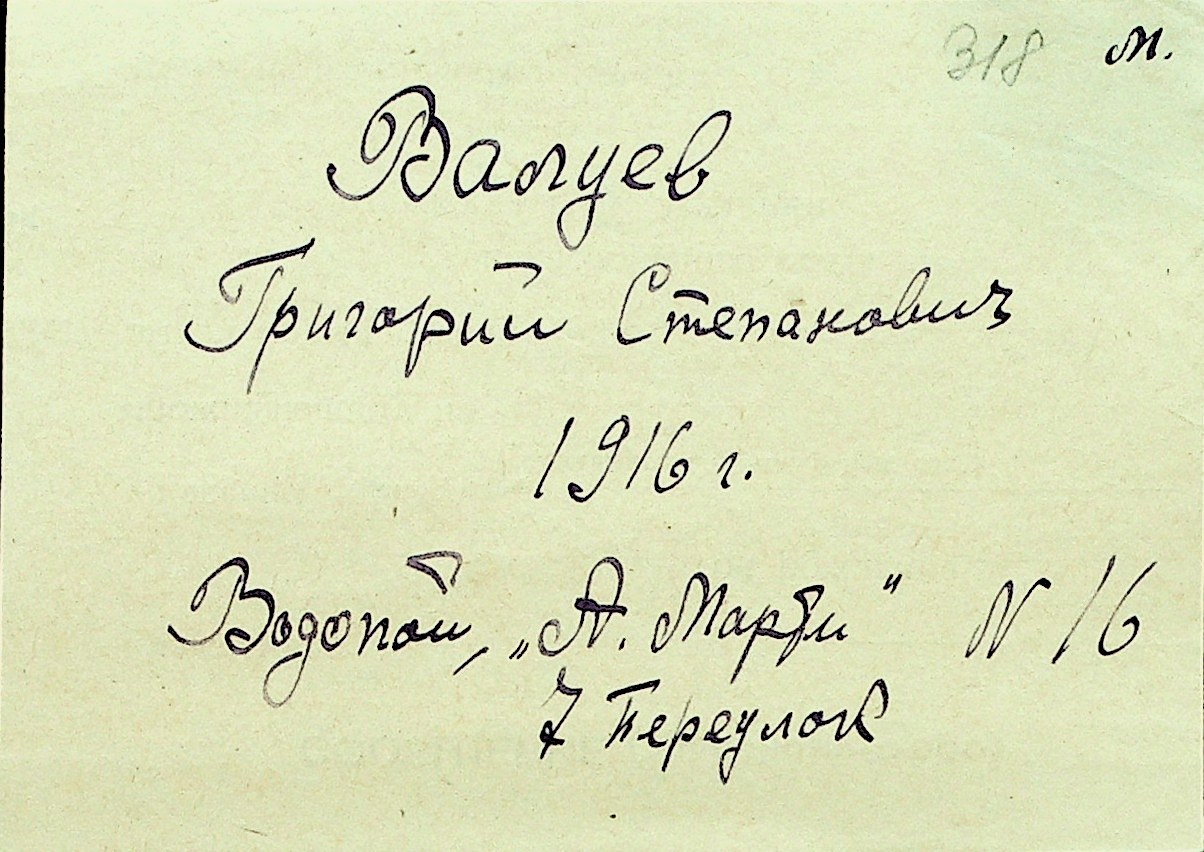 318 м.
Валуев
Григорий Степанович
1916 г.
Водопой, „А. Марти" N 16
7 Переулок